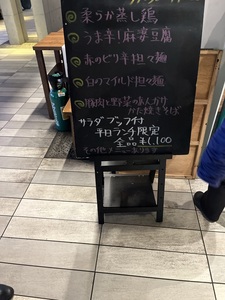 柔らか蒸し鶏
うま辛!麻婆豆腐
赤のピリ辛担々麺
白のマイルド担々麺
豚肉と野菜のあんかけ
かた焼きそば
サラダブッフェ付
平日ランチ限定
全品¥1,100
その他メニューあります